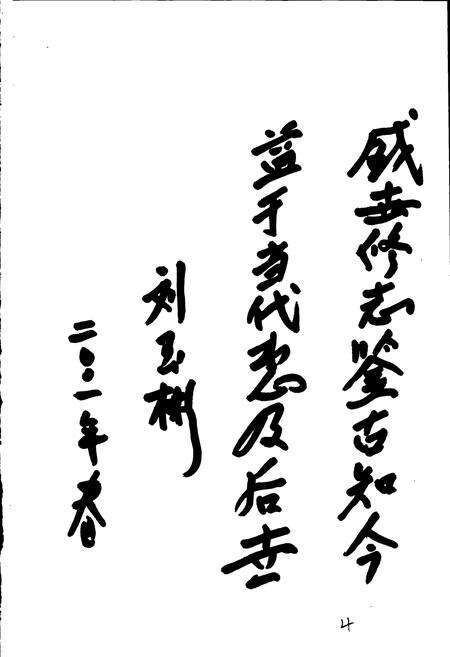 盛世修志鉴古知今
益于当代惠及后世
刘玉彬
二〇〇一年春
4